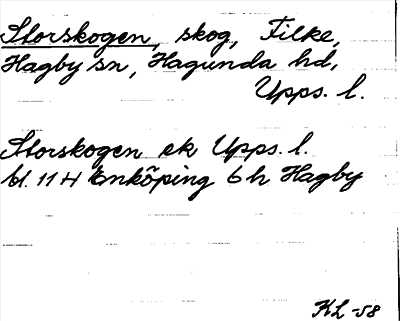 Storskogen, skog, Filke,
Hagby sn, Hagunda hd,
Upps. l.
Storskogen ek Upps. l.
bl. 11 H Enköping 6 h Hagby
KL -58